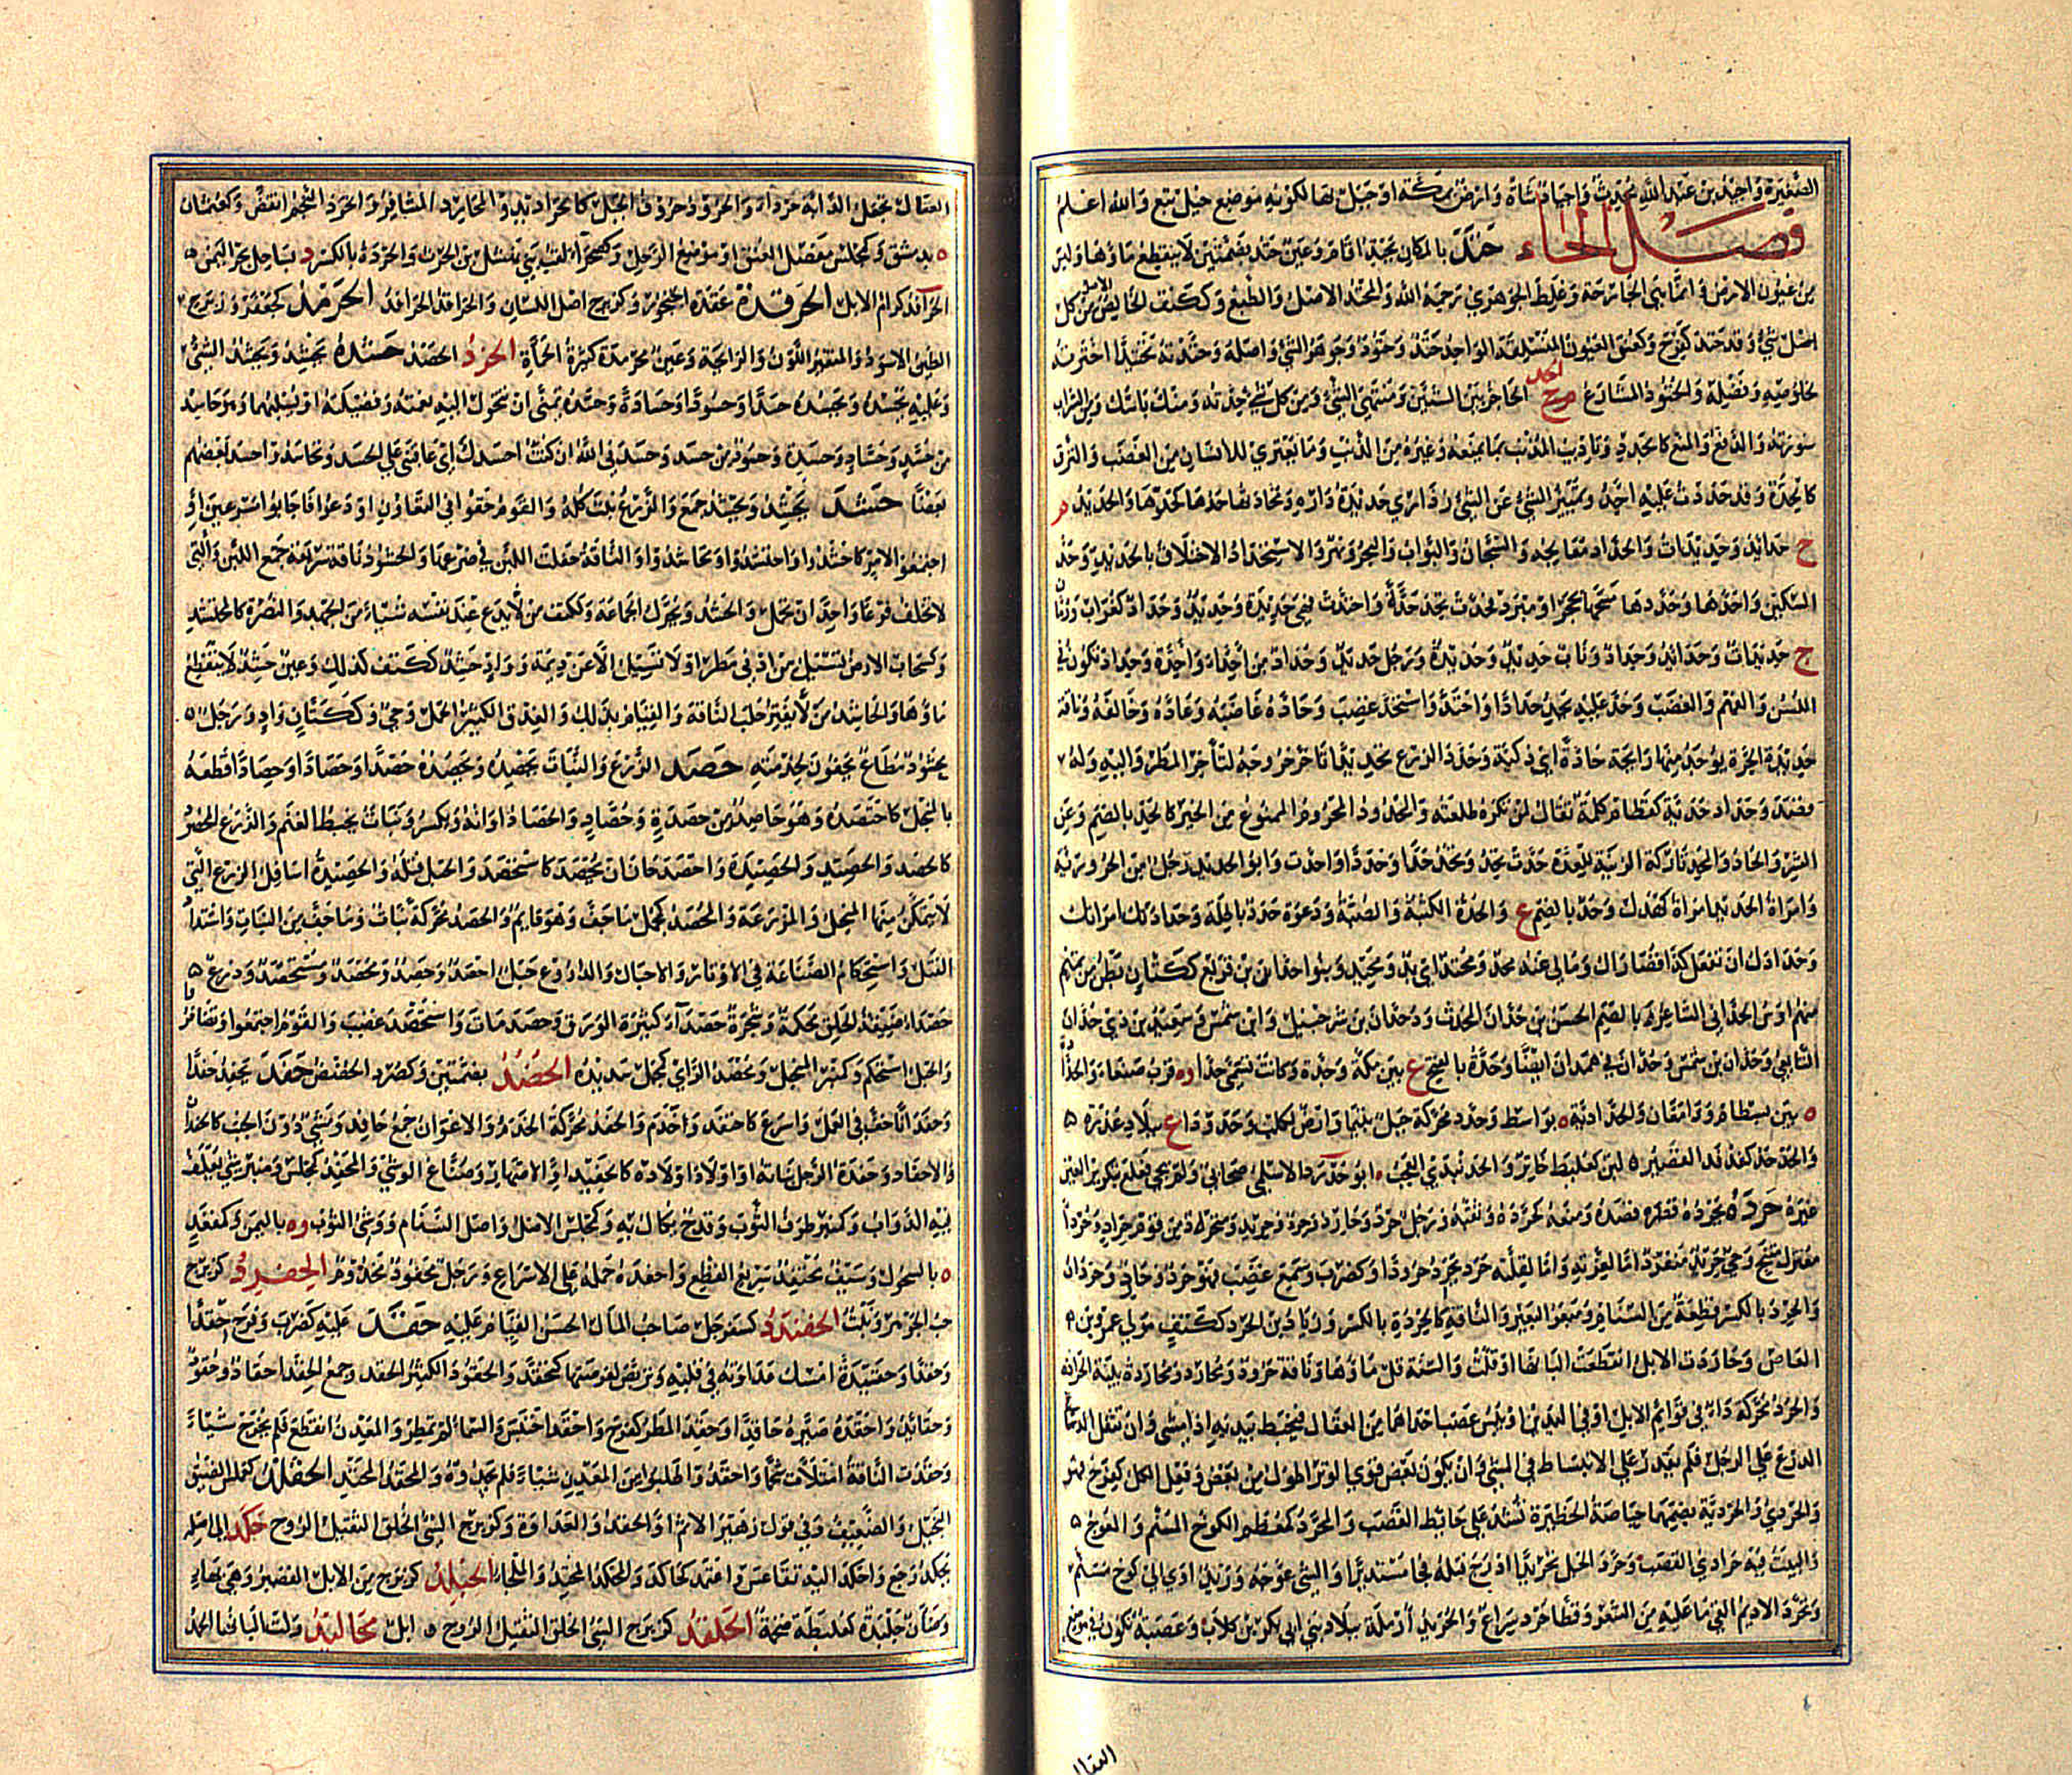 الصغيرة واجيد بن عبد الله محدث واجياد شاة وارض بمكة او جبل بها لكونه موضع خيل تبع والله اعلم
فصل الحاء حتد بالمكان يحتد اقام وعين حتد بضمتين لا ينقطع ماؤها وليس
من عيون الارض وانما بنى الجارحة وغلط الجوهري رحمه الله والمحتد الاصل والطبع وككتف الخالص الاصل من كل
اصل شئ وقد حتد كفرح وكعنق العيون المنسلقة الواحد حتد وحتود وجوهر الشئ واصله وحتدته تحتيدا اخترته
لخلوصه وفضله والحتود المشارع صح الحد الحاجز بين الشيئين ومنتهى الشئ ومن كل شئ حدته ومنك باسك ومن الشراب
سورته والدفع والمنع كالحدد وتاديب المذنب بما يمنعه وغيره من الذنب وما يعتري للانسان من الغضب والنزق
كالحدة وقد حددت عليه احد وتمييز الشئ عن الشئ وداري حديدة داره ومحادتها حدها كحدها والحديد م
ج حدائد وحديدات والحداد معالجه والسجان والبواب والبحر ونهر والاستحداد الاحتلاق بالحديد وحد
السكين واحدها وحددها مسحها بحجر او مبرد فحدت تحد حدة واحتدت فهي حديدة وحديد وحداد كغراب ورمان
ج حديدات وحدائد وحداد وناب حديد وحديدة ورجل حديد وحداد من احداء واحدة وحداد تكون في
اللسن والفهم والغضب وحد عليه يحد حددا واحتد واستحد غضب وحاده غاضبه وعاداه وخالفه وناقة
حديدة الجرة يوجد منها رائحة حادة اي ذكية وحدد الزرع تحديدا تاخر خروجه لتاخر المطر واليه وله
قصد وحداد حديه كقطام كلمة تقال لمن تكره طلعته والحدود المحروم الممنوع من الخير كالحد بالضم وعن
الشر والحاد والمحد تاركة الزينة للعدة حدت تحد وتحد حدا وحدادا واحدت وابو الحديد رجل من الحرورية
وامراة الحديد امراة كهدك وحد بالضم ع والحدة الكثبة والصبة ودعوة حدد باطلة وحدادتك امراتك
وحدادك ان تفعل كذا قصاراك ومالي عنه محد ومحتد اي بد ومحيد وبنو حدان بن قريع ككتان بطن من تميم
منهم اوس الحداني الشاعر وبالضم الحسن بن حدان المحدث وذو حدان بن شرحبيل وابن شمس وسعيد بن ذي حدان
التابعي وحدان بن شمس وحدان في همدان ايضا وحدة بالفتح ع بين مكة وجدة وكانت تسمى حدا و ه قرب صنعاء والحدادة
ه بين بسطام ودامغان والحدادية ه بواسط وحدد محركة جبل بتيما وارض لكلب وحدوداء ع ببلاد عذرة
والحدحد كفدفد القصير ه لبن كعلبط خاثر والحدبدبى العجب ه ابو حدرد الاسلمي صحابي ولم يجئ فعلع بتكرير العين
غيره حرده يحرده قصده ومنعه كحرده وثقبه ورجل حرد وحارد وحرد وحريد ومتحرد من قوم حراد وحردا
معتزل متنح وحي حريد منفرد اما لعزته واما لقلته حرد يحرد حرودا وكضرب وسمع غضب فهو حرد وحارد وحردان
والحرد بالكسر قطعة من السنام ومبعر البعير والناقة كالحردة بالكسر وزياد بن الحرد ككتف مولى عمرو بن
العاص وحاردت الابل انقطعت البانها او قلت والسنة قل ماؤها وناقة حرود ومحارد ومحاردة بينة الحراد
والحرد محركة داء في قوائم الابل او في اليدين او يبس عصب احداهما من العقال فيخبط بيديه اذا مشى وان تثقل الدرع
الدرع على الرجل فلم يقدر على الانبساط في المشي وان يكون بعض قوى الوتر اطول من بعض وفعل الكل كفرح فهو
والحردي والحردية بضمهما حياصة الحظيرة تشد على حائط القصب والحرد كمعظم الكوخ المسنم والعوج
والبيت فيه حرادي القصب وحرد الحبل تحريدا ادرج فتله فجا مستديرا والشئ عوجه وزيد اوى الى كوخ مسنم
وتحرد الاديم القى ما عليه من الشعر وقطا حرد سراع والحريد ارملة ببلاد بني ابي بكر بن كلاب وعصبة تكون في موضع
العقال
العقال تجعل الدابة حرداء والحرود حروف الحبل كالحراديد والمحارد المشافر والحرد النجم انقض وكعثمان
ه بدمشق وكمجلس مفصل العنق او موضع الرحل وكصحراء لقب بني نهشل بن الحرث والحردة بالكسر د بساحل بحر اليمن
الحرافد كرام الابل الحرقدة عقدة الحنجور وكزبرج اصل اللسان والحراقد الحرافد الحرمد كجعفر وزبرج
الطين الاسود والمتغير اللون والرائحة وعين محرمدة كثيرة الحمأة الحزد الحصد حسده يحسد ويحسد الشئ
وعليه يحسده ويحسده حسدا وحسودا وحسادة وحسده تمنى ان تتحول اليه نعمته وفضيلته او يسلبهما وهو حاسد
من حسد وحساد وحسدة وحسود من حسد وحسدني الله ان كنت احسدك اي عاقبني على الحسد وتحاسدوا حسد بعضهم
بعضا حشد يحشد ويحشد جمع والزرع نبت كله والقوم حفوا في التعاون او دعوا فاجابوا مسرعين او
اجتمعوا لامر كاحشدوا واحتشدوا وتحاشدوا والناقة حفلت اللبن في ضرعها والحشود ناقة سريعة جمع اللبن والتي
لا تخلف قرعا واحدا ان تحمل والحشد ويحرك الجماعة وككتف من لا يدع عند نفسه شيئا من الجهد والنصرة كالمحتشد
وكسحاب الارض تسيل من ادنى مطر او لا تسيل الا عن ديمة وواد حشد ككتف كذلك وعين حشد لا ينقطع
ماؤها والحاشد من لا يفتر حلب الناقة والقيام بذلك والعذق الكثير الحمل وحي وككتان واد ورجل
محشود مطاع يخفون لخدمته حصد الزرع والنبات يحصده ويحصده حصدا وحصادا وحصادا قطعه
بالمنجل كاحتصده وهو حاصد من حصدة وحصاد والحصاد اوانه ويكسر ونبات يخبط الغنم والزرع المحصود
كالحصد والحصيد والحصيدة واحصد حان ان يحصد كاستحصد والحبل فتله والحصيدة اسافل الزرع التي
لا يتمكن منها المنجل والمزرعة والمحصد كمجمل ما جف وهو قايم والحصد محركة نبات وما جف من النبات واشتداد
الفتل واستحكام الصناعة في الاوتار والاحبال والدروع حبل احصد وحصد ومحصد ومستحصد ودرع
حصداء ضيقة الحلق محكمة وشجرة حصداء كثيرة الورق وحصد مات واستحصد غضب والقوم اجتمعوا وتضافروا
والحبل استحكم وكمنبر المنجل ومحصد الراي كمجمل سديده الحضد بضمتين وكصرد الحضض حفد يحفد حفدا
وحفدانا خف في العمل واسرع كاحتفد وخدم والحفد محركة الخدم والاعوان جمع حافد ومشي دون الخبب كالحفدان
والاحفاد وحفدة الرجل بناته او اولاد اولاده كالحفيد او الاصهار وصناع الوشي والمحفد كمجلس ومنبر شئ يعلف
فيه الدواب وكمنبر طرف الثوب وقدح يكال به وكمجلس الاصل واصل السنام ووشي الثوب و ه باليمن وكمقعد
ه بالسحول وسيف محتفد سريع القطع واحفده حمله على الاسراع ورجل محفود مخدوم الحفرد كزبرج
حب الجوهر ونبت الحفندد كسفرجل صاحب المال الحسن القيام عليه حقد عليه كضرب وفرح حقدا
وحقدا وحقيدة امسك عداوته في قلبه وتربص لفرصتها كتحقد والحقود الكثير الحقد وجمع الحقد احقاد وحقود
وحقائد واحقده صيره حاقدا وحقد المطر كفرح واحقد احتبس والسماء لم تمطر والمعدن انقطع فلم يخرج شيئا
وحقدت الناقة امتلات شحما واحقدوا طلبوا من المعدن شيئا فلم يجدوه والمحقد المحتد الحقلد كعملس الضيق
البخيل والضعيف وفي قول زهير الاثم او الحقد والعداوة وكزبرج السئ الخلق الثقيل الروح حكد الى اصله
يحكد رجع واحكد اليه تقاعس واعتمد كحاكد والمحكد المحتد والملجا الحلبد كزبرج من الابل القصير وهي بهاء
وضأن حلبدة كعلبطة ضخمة الحلقد كزبرج السئ الخلق الثقيل الروح ه ابل محاليد ولت البانها الحمد